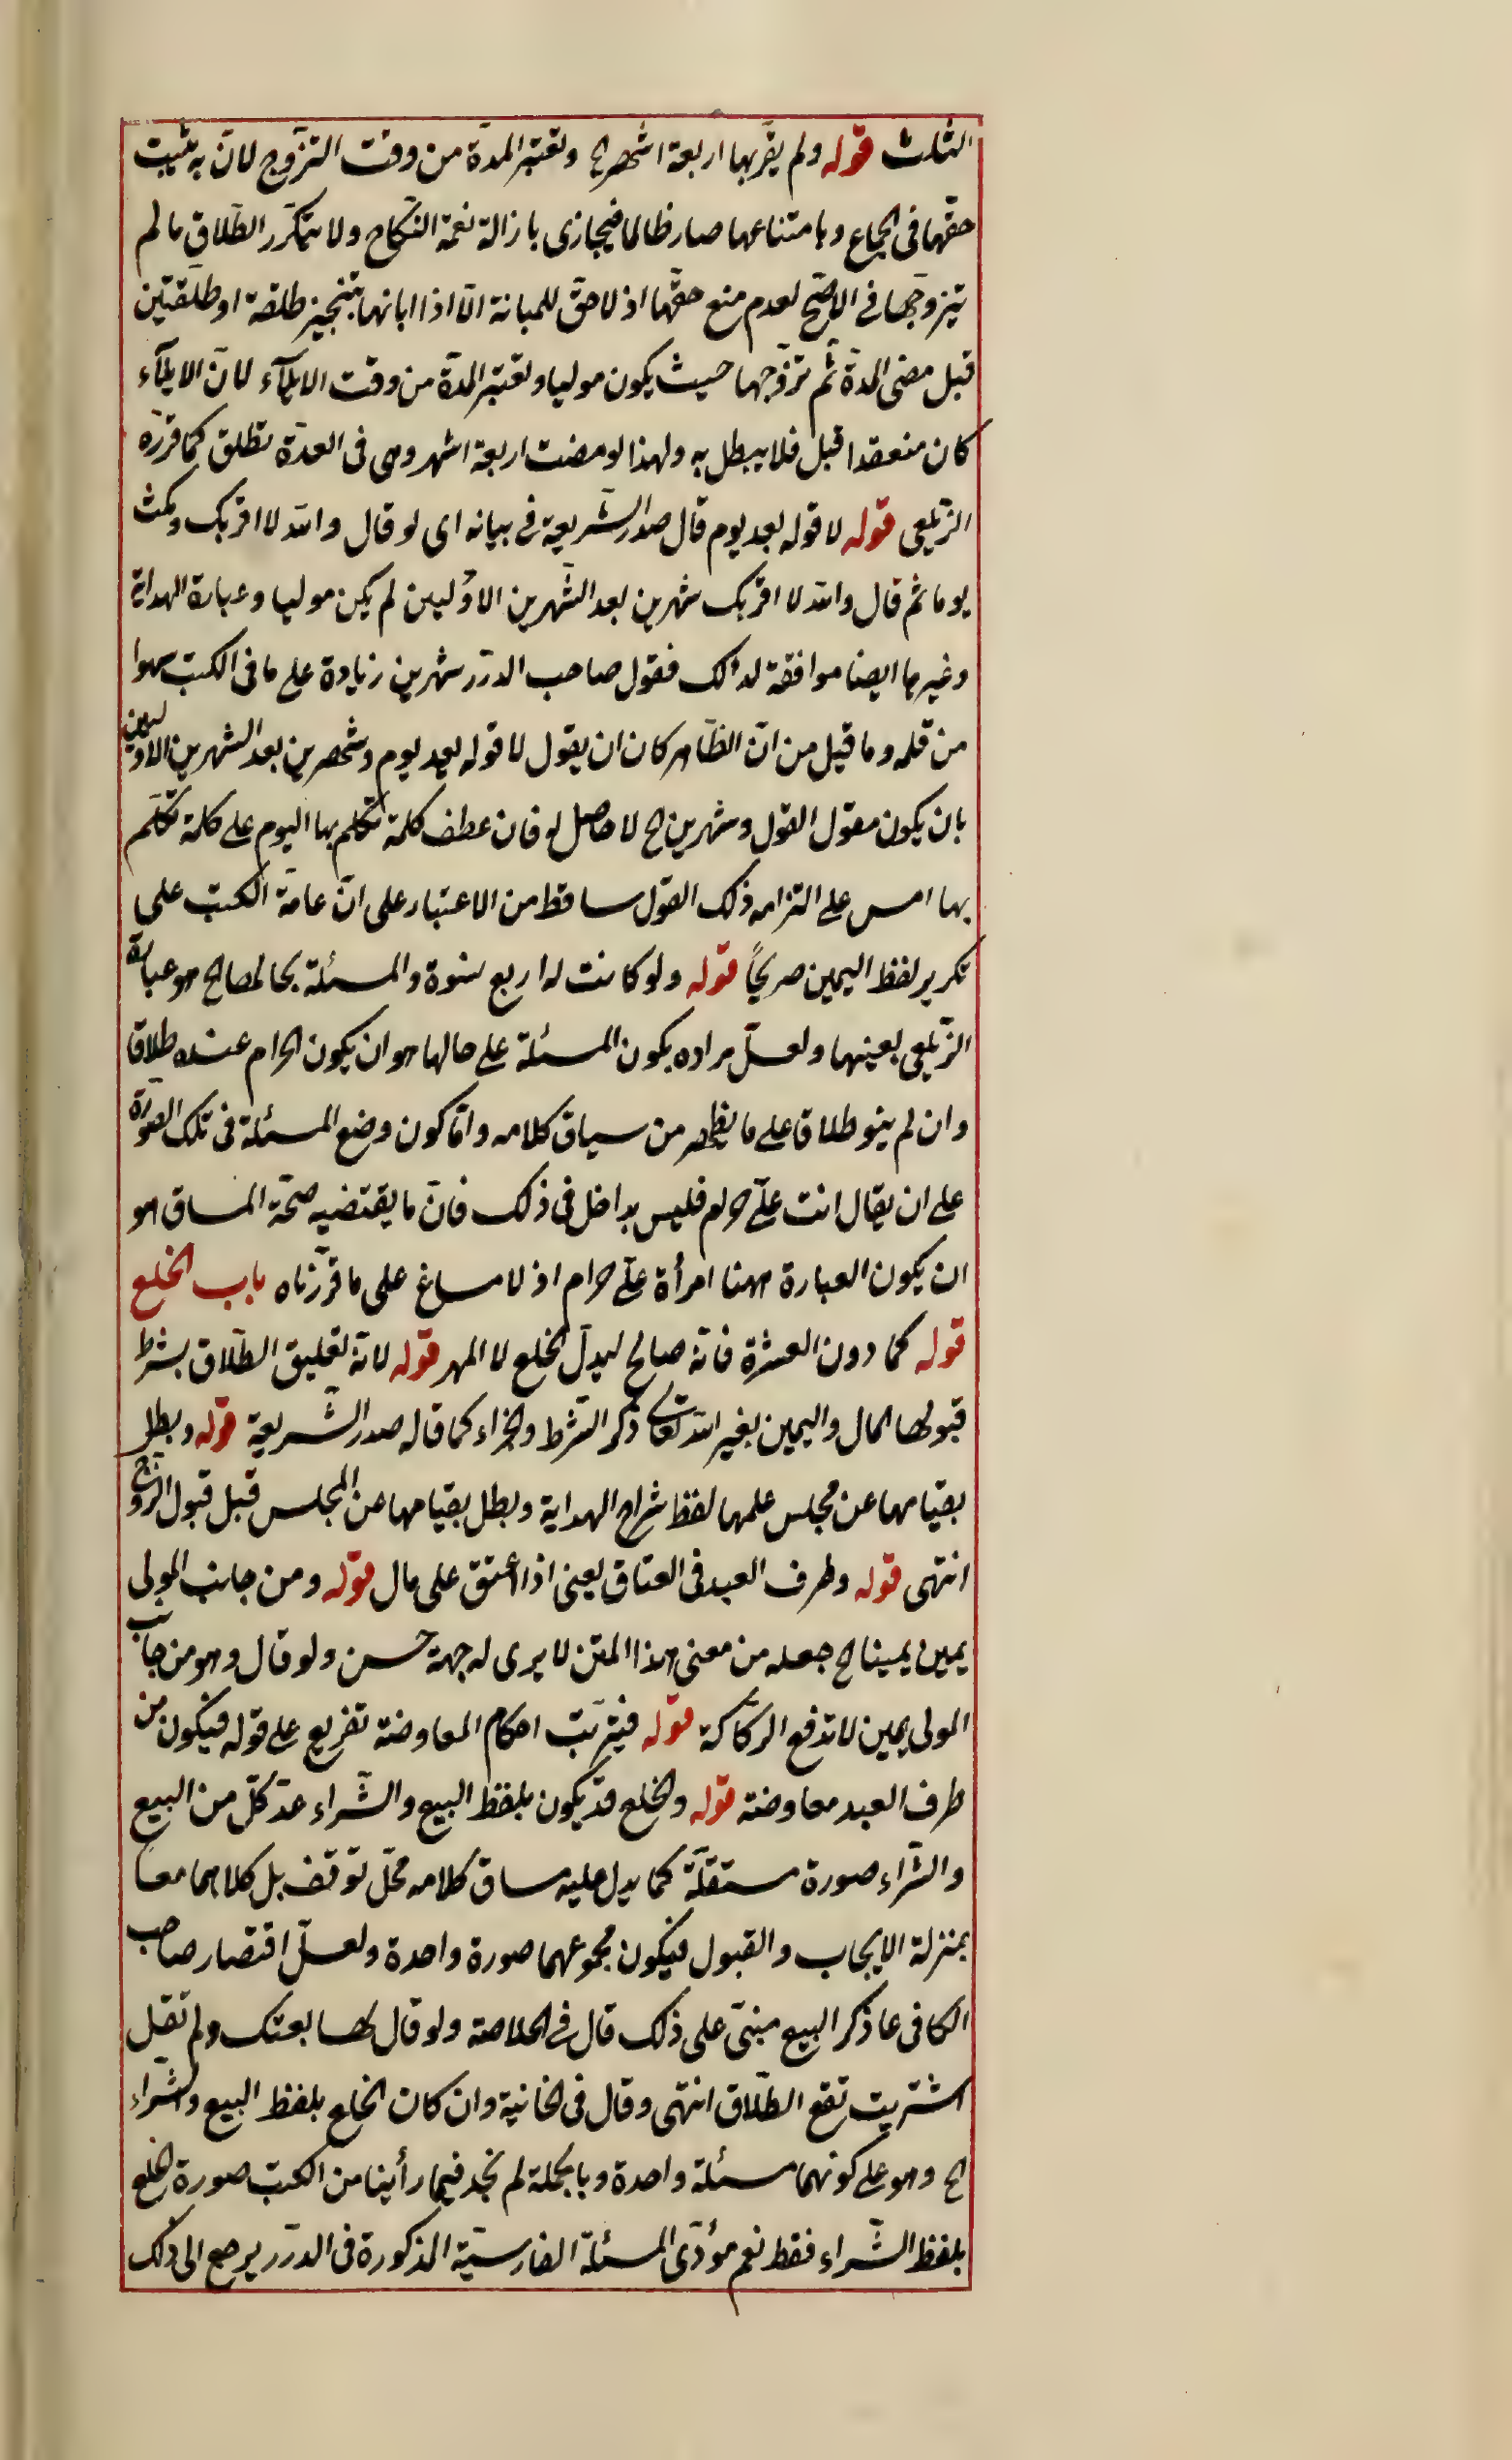 الثلث قوله ولم يقربها اربعة اشهر الخ وتعتبر المدة من وقت التزوج لان به يثبت
حقها فى الجماع وبامتناعها صار ظالما فيجازى بازالة نعمة النكاح ولا يتكرر الطلاق ما لم
يتزوجها فى الاصح لعدم منع حقها اذ لا حق للمبانة الا اذا ابانها بتنجيز طلقة او طلقتين
قبل مضى المدة ثم تزوجها حيث يكون موليا وتعتبر المدة من وقت الايلاء لان الايلاء
كان منعقدا قبل فلا يبطل به ولهذا لو مضت اربعة اشهر وهى فى العدة تطلق كما قرره
الزيلعى قوله لا قوله بعد يوم قال صدر الشريعة فى بيانه اى لو قال والله لا اقربك ومكث
يوما ثم قال والله لا اقربك شهرين بعد الشهرين الاوليين لم يكن موليا وعبارة الهداية
وغيرها ايضا موافقة لذلك فقول صاحب الدرر شهرين زيادة على ما فى الكتب سهوا
من قلمه وما قيل من ان الظاهر كان ان يقول لا قوله بعد يوم وشهرين بعد الشهرين الاوليين
بان يكون مقول القول وشهرين الخ لا حاصل له فان عطف كلمة تكلم بها اليوم على كلمة تكلم
بها امس على التزامه ذلك القول ساقط من الاعتبار على ان عامة الكتب على
تكرير لفظ اليمين صريحا قوله ولو كانت له اربع نسوة والمسئلة بحالها الخ هو عبارة
الزيلعى بعينها ولعل مراده بكون المسئلة على حالها هو ان يكون الحرام عنده طلاقا
وان لم ينو طلاقا على ما يظهر من سياق كلامه واما كون وضع المسئلة فى تلك الصورة
على ان يقال انت على حرام فليس بداخل فى ذلك فان ما يقتضيه صحة المساق هو
ان يكون العبارة ههنا امرأة على حرام اذ لا مساغ على ما قررناه باب الخلع
قوله كما دون العشرة فانه صالح لبدل الخلع لا المهر قوله لانه تعليق الطلاق بشرط
قبولها المال واليمين بغير الله تعالى ذكر الشرط والجزاء كما قاله صدر الشريعة قوله وبطل
بقيامها عن مجلس علمها لفظ شراح الهداية وبطل بقيامها عن المجلس قبل قبول الزوج
انتهى قوله وطرف العبد فى العتاق يعنى اذا اعتق على مال قوله ومن جانب المولى
يمين يمينا الخ جعله من معنى هذا المتن لا يرى له جهة حسن ولو قال وهو من جانب
المولى يمين لاندفع الركاكة قوله فيترتب احكام المعاوضة تفريع على قوله فيكون من
طرف العبد معاوضته قوله والخلع قد يكون بلفظ البيع والشراء عد كل من البيع
والشراء صورة مستقلة كما يدل عليه مساق كلامه محل توقف بل كلاهما معا
بمنزلة الايجاب والقبول فيكون مجموعهما صورة واحدة ولعل اقتصار صاحب
الكافى عا ذكر البيع مبنى على ذلك قال فى الخلاصة ولو قال لها بعتك ولم تقل
اشتريت تقع الطلاق انتهى وقال فى الخانية وان كان الخلع بلفظ البيع والشراء
الخ وهو على كونهما مسئلة واحدة وبالجملة لم نجد فيما رأينا من الكتب صورة الخلع
بلفظ الشراء فقط نعم مؤدى المسئلة الفارسية المذكورة فى الدرر يرجع الى ذلك